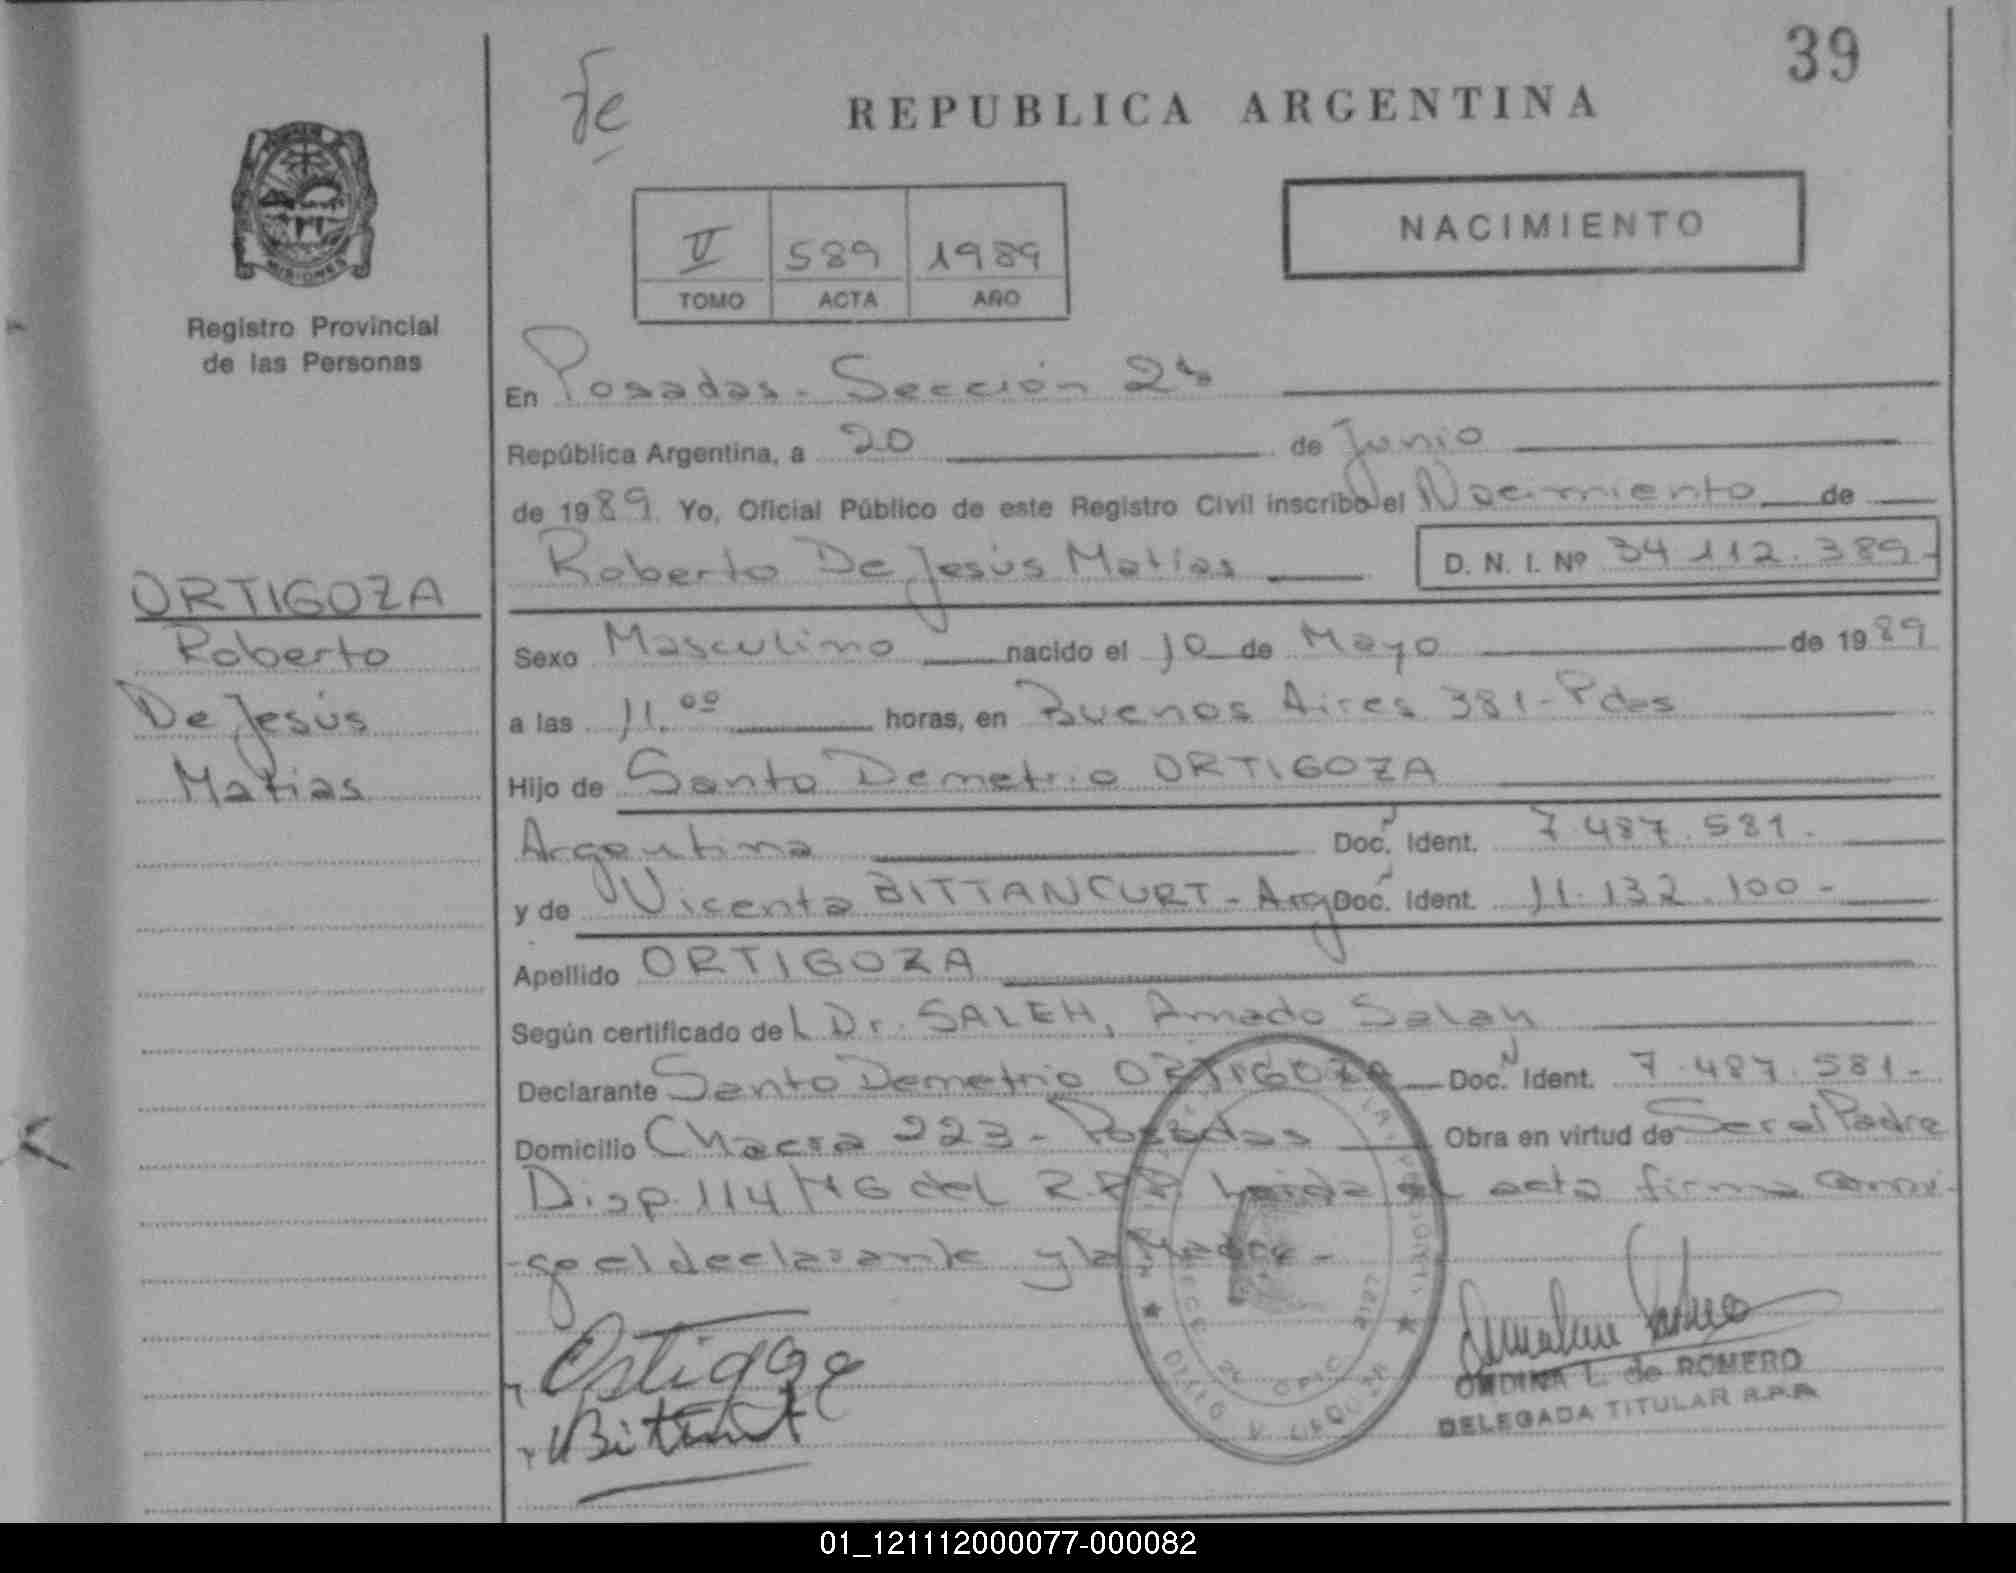 39
fe
REPUBLICA ARGENTINA
MISIONES
Registro Provincial
de las Personas
V 589 1989
TOMO ACTA AÑO
NACIMIENTO
En Posadas - Sección 2da
República Argentina, a 20 de Junio
de 1989. Yo, Oficial Público de este Registro Civil inscribo el Nacimiento de
Roberto De Jesús Matías D. N. I. Nº 34.112.389-
ORTIGOZA
Roberto
De Jesús
Matias
Sexo Masculino nacido el 10 de Mayo de 1989
a las 11.00 horas, en Buenos Aires 381 - Pdas
Hijo de Santo Demetrio ORTIGOZA
Argentino Doc. Ident. 7.487.581.
y de Vicenta BITTANCURT - Arg Doc. Ident. 11.132.100-
Apellido ORTIGOZA
Según certificado del Dr. SALEH, Amado Salah
Declarante Santo Demetrio ORTIGOZA Doc. Ident. 7.487.581-
Domicilio Chacra 223 - Posadas Obra en virtud de Ser el Padre
Disp. 114/76 del R.P.P. Leida el acta firma conmi-
-go el declarante y la Madre -
Ortigoza
Bitancurt
ONDINA L. de ROMERO
DELEGADA TITULAR R.P.P.
01_121112000077-000082